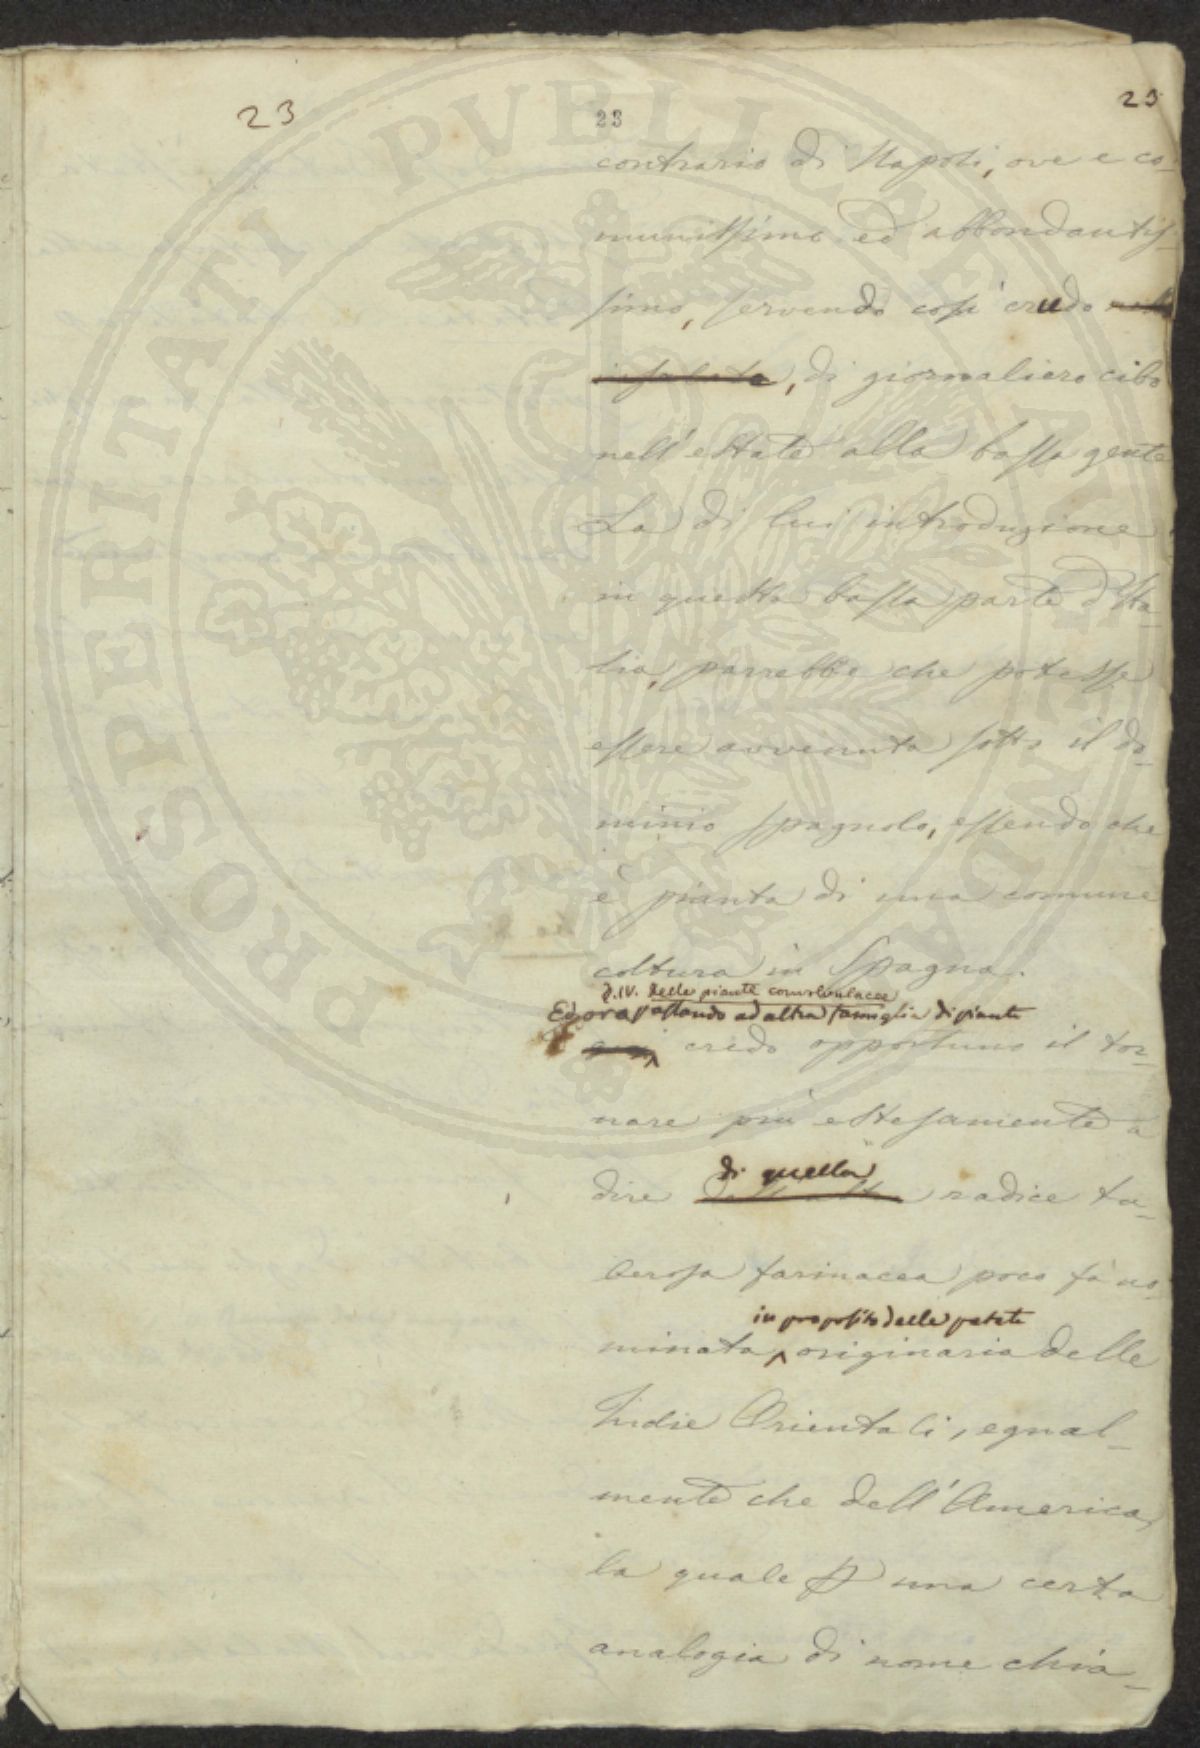 23
23
25
contrario di Napoli, ove e co-
munissimo ed abbondantis-
simo, servendo così crudo
insalata, di giornaliero cibo
nell'estate alla bassa gente
La di lui introduzione
in questa bassa parte d'Ita-
lia, parrebbe che potesse
essere avvenuta sotto il do-
minio spagnolo, essendo che
è pianta di una comune
coltura in Spagna.
§.IV. Delle piante convolvulacee
Ed ora passando ad altra famiglia di piante
credo opportuno il tor-
nare più estesamente a
di quella
dire radice tu-
berosa farinacea poco fà no-
in proposito delle patate
minata, originaria delle
Indie Orientali, egual-
mente che dell'America,
la quale p una certa
analogia di nome chia-
PROSPERITATI PVBLICAE AVGENDAE